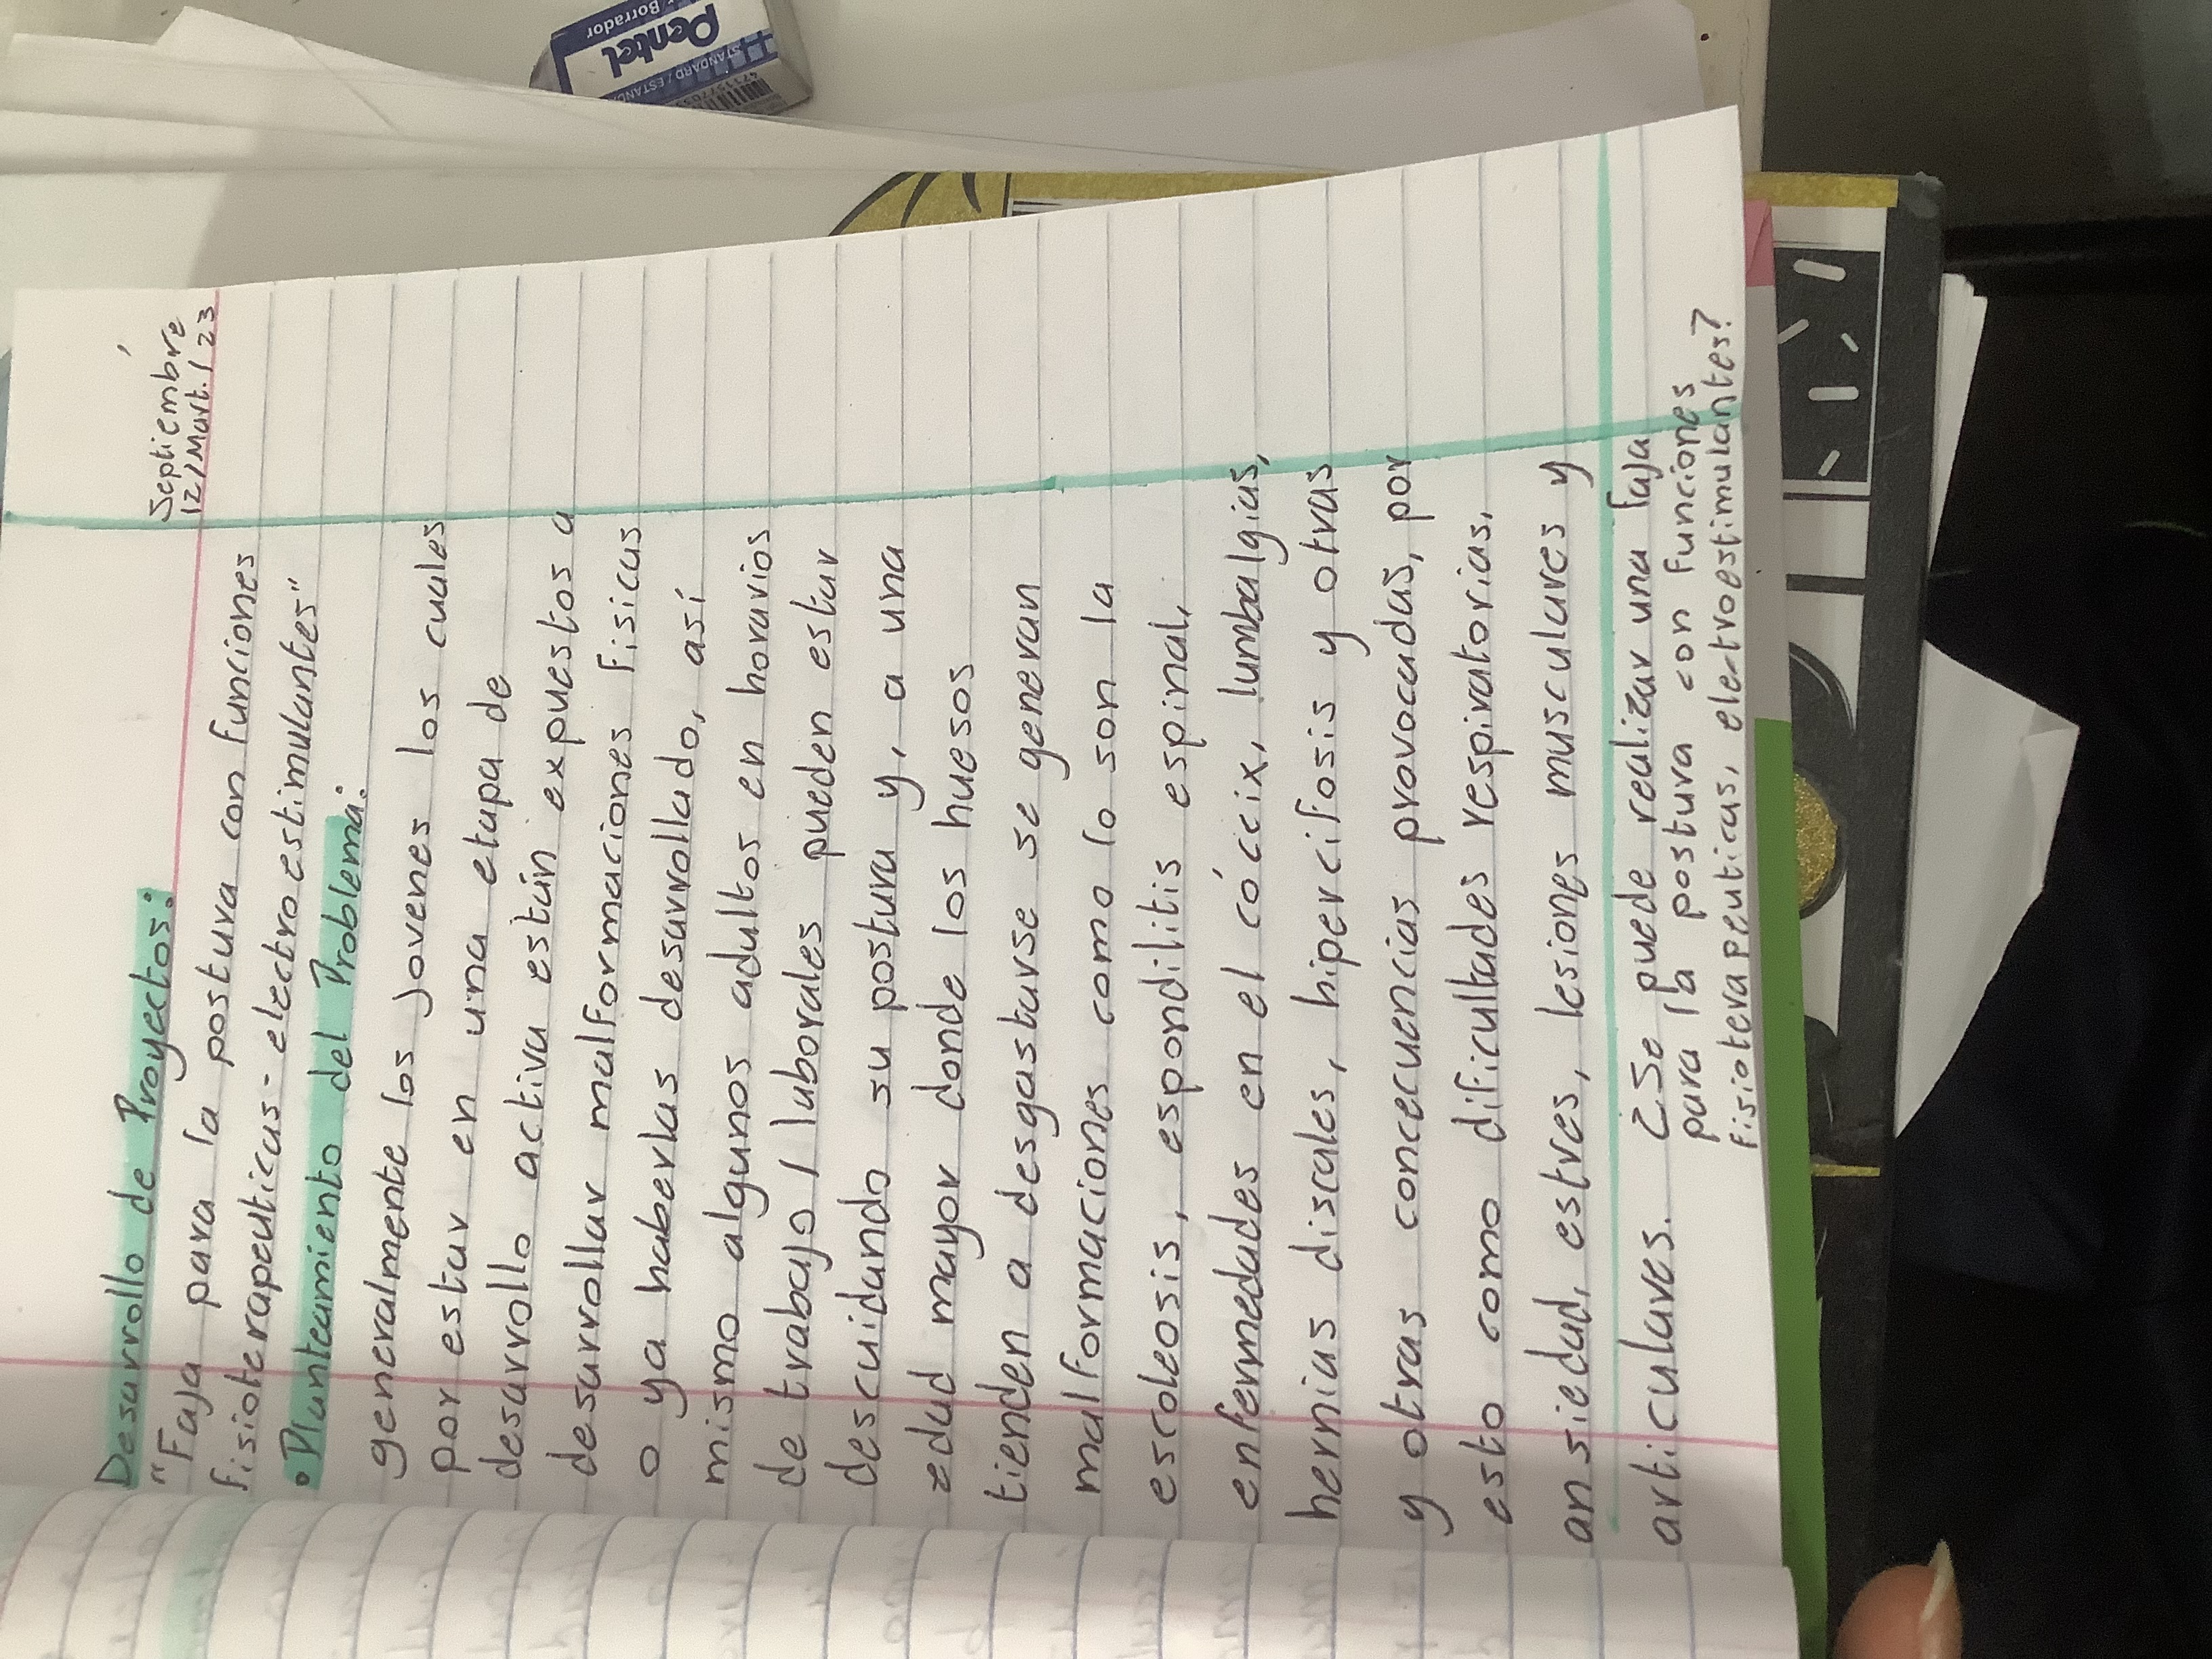 Septiembre
12/Mart./23
Desarrollo de Proyectos:
"Faja para la postura con funciones
fisioterapeuticas- electroestimulantes"
• Planteamiento del Problema:
generalmente los jovenes los cuales
por estar en una etapa de
desarrollo activa están expuestos a
desarrollar malformaciones fisicas
o ya haberlas desarrollado, así
mismo algunos adultos en horarios
de trabajo/laborales pueden estar
descuidando su postura y, a una
edad mayor donde los huesos
tienden a desgastarse se generan
malformaciones como lo son la
escoleosis, espondilitis espinal,
enfermedades en el cóccix, lumbalgias,
hernias discales, hipercifosis y otras
y otras concecuencias provocadas, por
esto como dificultades respiratorias,
ansiedad, estres, lesiones musculares y
articulares. ¿Se puede realizar una faja
para la postura con funciones
fisioterapeuticas, electroestimulantes?
Pentel
Borrador
STANDARD / ESTAND